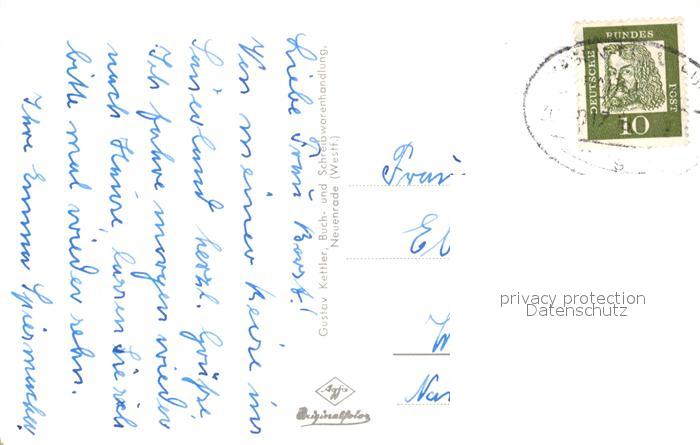 Liebe Frau Borst!
Von meiner Reise ins
Sauerland herzl. Grüße.
Ich fahre morgen wieder
nach Hause, lassen Sie sich
bitte mal wieder sehn.
Ihre Emma
Gustav Kettler, Buch- und Schreibwarenhandlung,
Neuenrade (Westf.)
Agfa
Originalfoto
Frau
El
W
Nar
DEUTSCHE
BUNDES
POST
10
privacy protection
Datenschutz